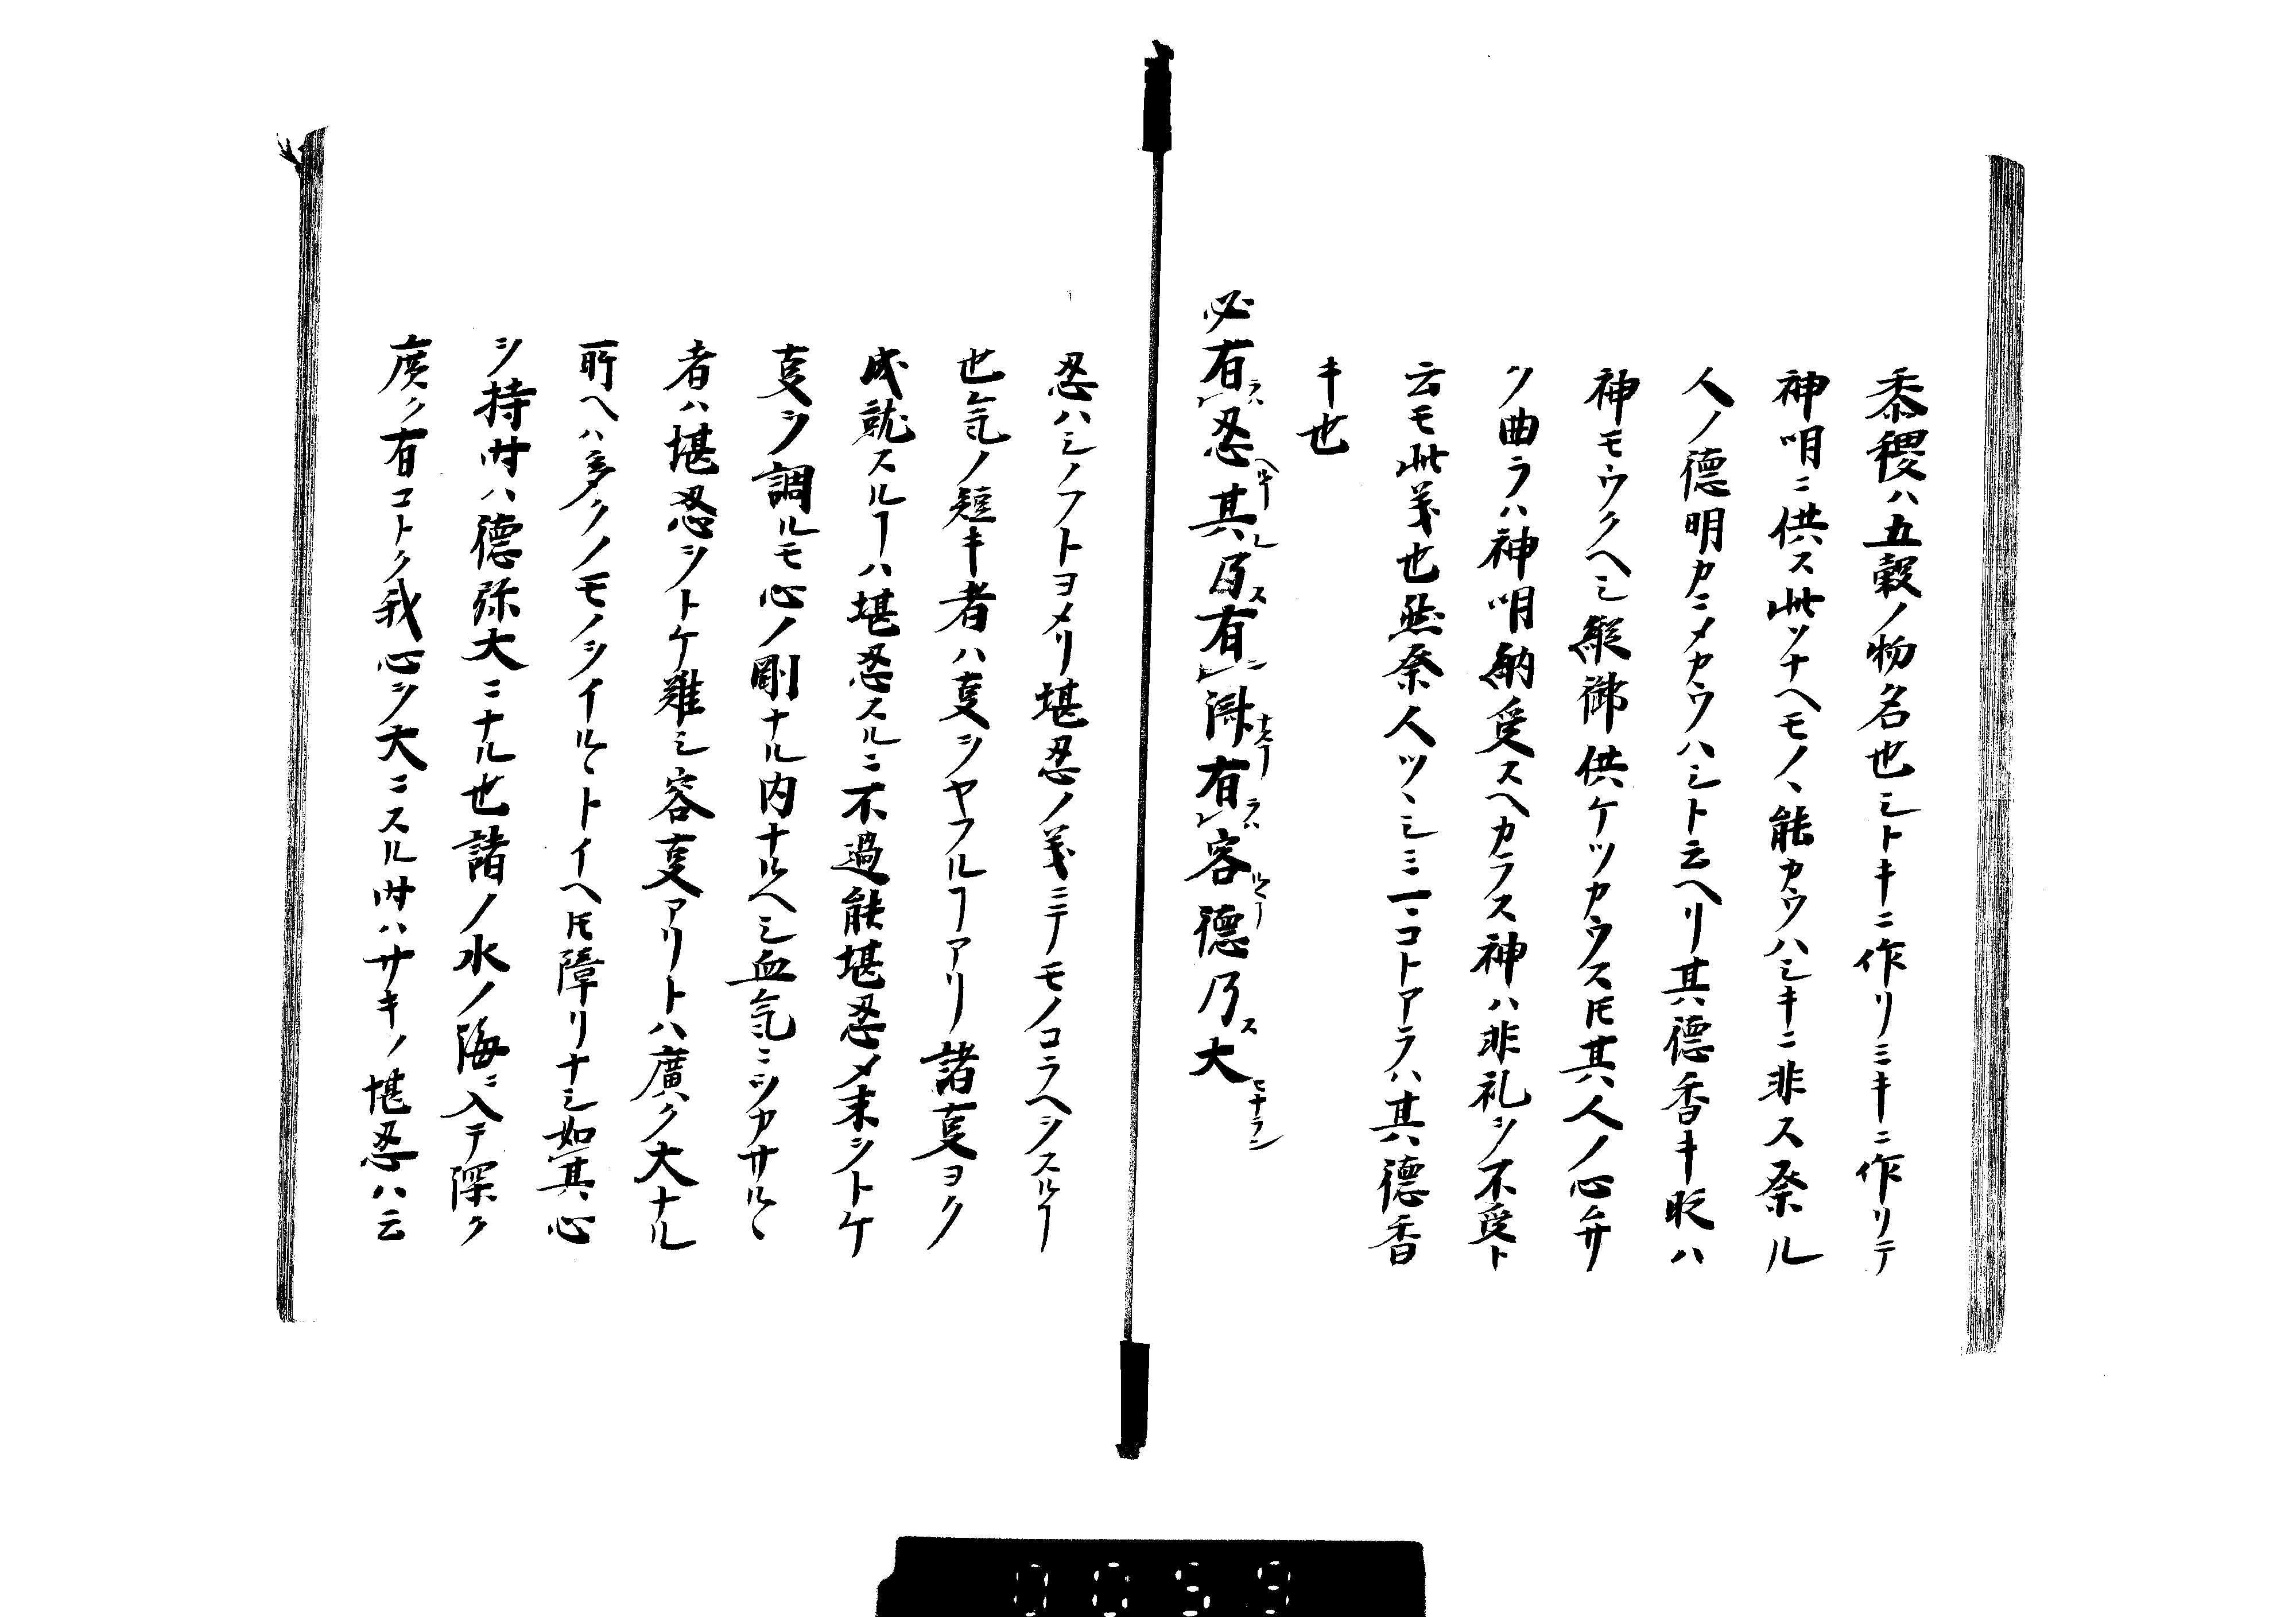 黍稷ハ五穀ノ物名也シトキニ作リミキニ作リテ
神明ニ供ス此ソナヘモノヽ能カウハシキニ非ス祭ル
人ノ德明カニメカウハシト云ヘリ其德香キ眨ハ
神モウクヘシ縱御供ケツカウス𪜈其人ノ心弁
ク曲ラハ神明納受スヘカラス神ハ非礼ヲ不受ト
云モ此義也然祭人ツヽシミ一コトアラハ其德香
キ也
必有忍其乃有濟有容德乃大
忍ハシノフトヨメリ堪忍ノ義ミテモノコラヘヲスルヿ
也氣ノ短キ者ハ㕝ヲヤフルヿアリ諸㕝ヨク
成就スルヿハ堪忍スルニ不過能堪忍メ末ヲトケ
㕝ヲ調ルモ心ノ剛ナル内ナルヘシ血氣ニツカサルヽ
者ハ堪忍ヲトケ難シ容㕝アリトハ廣ク大ナル
所ヘハ多クノモノヲイルヽトイヘ𪜈障リナシ如其心
ヲ持时ハ德弥大ニナル也諸ノ水ノ海ニ入テ深ク
廣ク有コトク我心ヲ大ニスル时ハサキノ堪忍ハ云